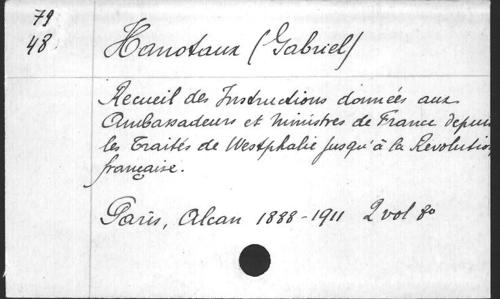 79
48
Hanotaux (Gabriel)
Recueil des Instructions données aux
Ambassadeurs et Ministres de France depuis
les Traités de Westphalie jusqu'à la Révolution
française.
Paris, Alcan 1888-1911 2 vol 8o